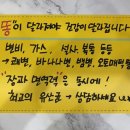 똥이 달라져야 건강이 달라집니다
변비, 가스, 설사, 복통 등등
→ 쾌변, 바나나변, 뱀변, 오토매틱변
"장과 면역력을 동시에!
최고의 유산균 → 상담하세요